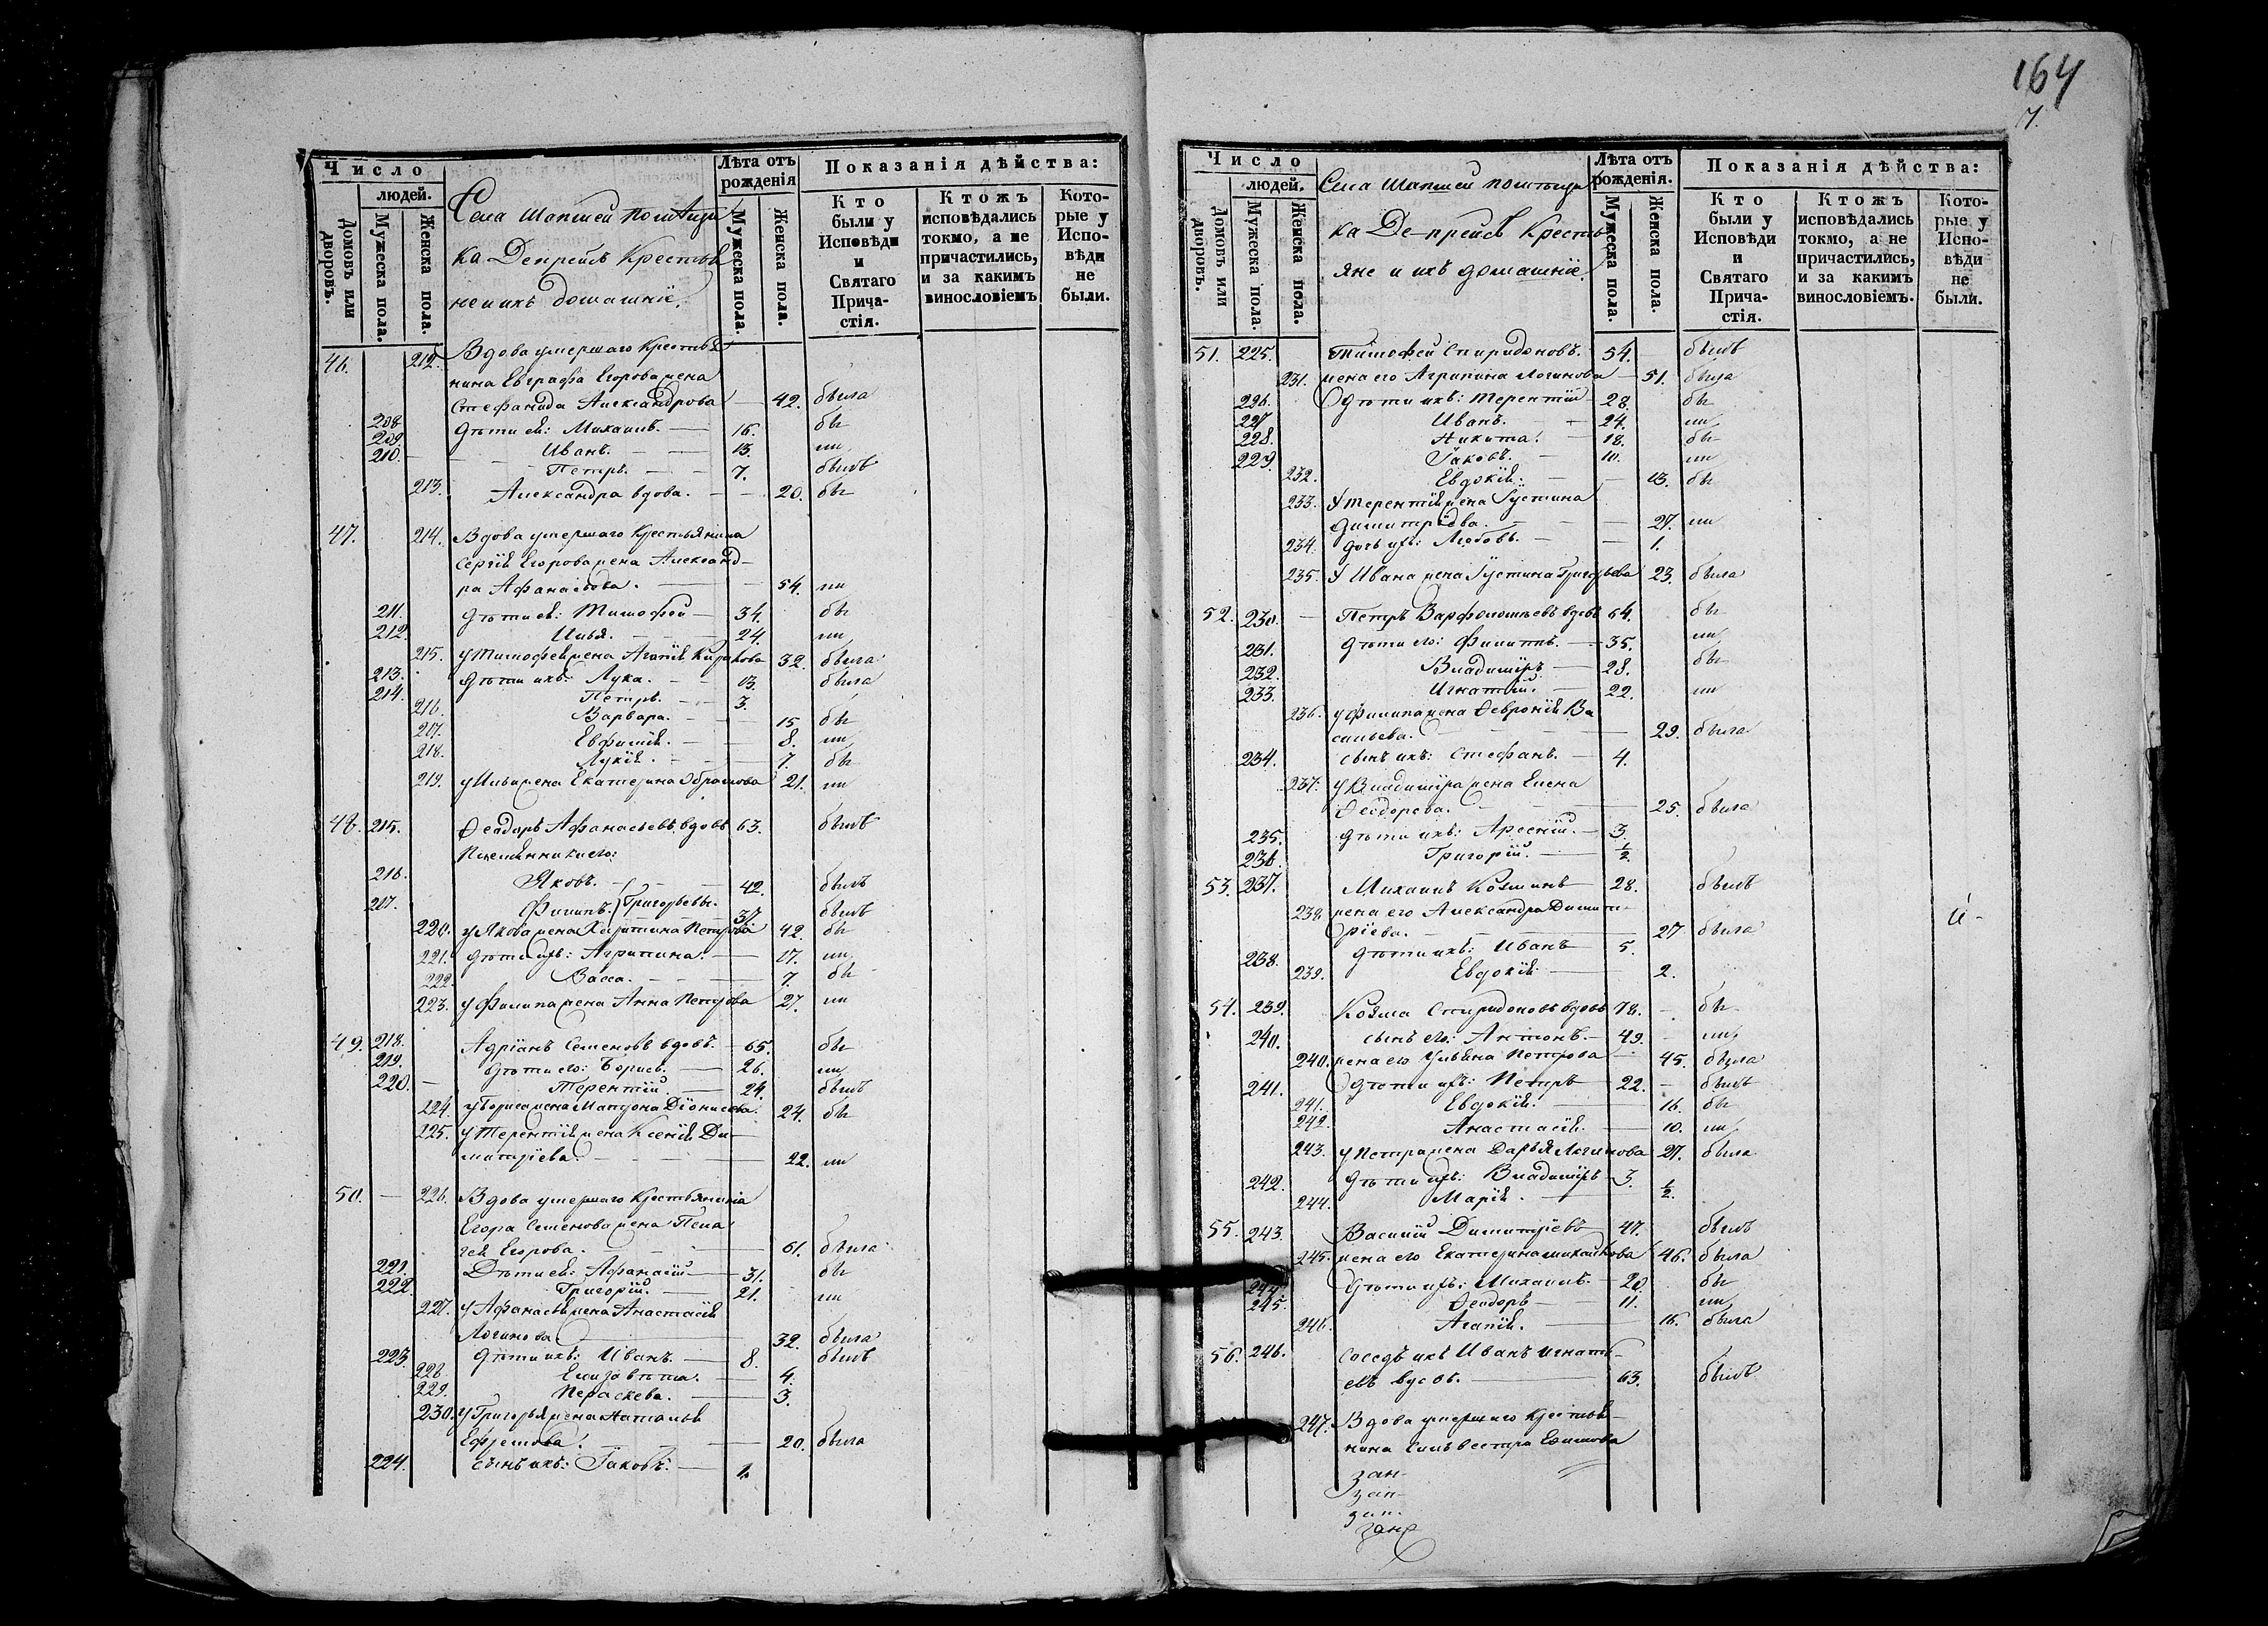 164
7.
Число
людей.
Домовъ или дворовъ.
Мужеска пола.
Женска пола.
Села Шапшей помѣщи
ка Депрейсъ Крестья
не и ихъ домашніе.
Лѣта отъ рожденія
Мужеска пола.
Женска пола.
Показанія дѣйства:
Кто были у Исповѣди и Святаго Прича-стія.
Ктожъ исповѣдались токмо, а не причастились, и за какимъ винословіемъ
Кото-рые у Испо-вѣди не были.
46. 212. Вдова умершаго Крестья
нина Евграфа Егорова жена
Стефанида Александрова — 42. была
208. дѣти ея: Михаилъ. — 16. бы
209. Иванъ. — 13. ли
210. Петръ. — 7. былъ
213. Александра вдова. — 20. бы
47. 214. Вдова умершаго Крестьянина
Сергія Егорова жена Александ-
ра Афанасьева. — 54. ли
211. дѣти ея: Тимофей — 34. бы
212. Илья. — 24. ли
215. у Тимофея жена Агапія 32. была
213. дѣти ихъ: Лука. — 13. была
214. Петръ. — 3.
216. Варвара. — 15 бы
217. Евфимія. — 8. ли
218. Лукія. — 7. бы
219. у Ильи жена Екатерина Абрамова 21. ли
48. 215. Ѳеодоръ Афанасьевъ вдовъ 63. былъ
Племянники его:
216. Яковъ. — 42. былъ
217. Филипъ. Григорьевы. 37. былъ
220. у Якова жена Харитина Петрова 42. бы
221. дѣти ихъ: Агрипина. — 17. ли
222. Васса. — 7. бы
223. у Филипа жена Анна Петрова 27. ли
49. 218. Адріанъ Семеновъ вдовъ. — 65. бы
219. дѣти его: Борисъ. — 26. ли
220. — Терентій. — 24. былъ
224. у Бориса жена Діонисьева. 24. бы
225. у Терентія жена Ксенія Ди-
митріева. — 22. ли
50. — 226. Вдова умершаго Крестьянина
Егора Семенова жена Пела
гея Егорова. — 61. была
221. Дѣти ея: Афанасій — 31. бы
222. Григорій. — 21. ли
227. у Афанасья жена Анастасія
Логинова — 32. была
223. дѣти ихъ: Иванъ. — 8. былъ
228. Елизавета. — 4.
229. Параскева. — 3.
230. у Григорья жена Наталья
Ефремова. — 20. была
224. сынъ ихъ: Іаковъ. — 1.
Число
людей.
Домовъ или дворовъ.
Мужеска пола.
Женска пола.
Села Шапшей помѣщи
ка Депрейсъ Крестья
яне и ихъ домашніе.
Лѣта отъ рожденія.
Мужеска пола.
Женска пола.
Показанія дѣйства:
Кто были у Исповѣди и Святаго Прича-стія.
Ктожъ исповѣдались токмо, а не причастились, и за какимъ винословіемъ.
Кото-рые у Испо-вѣди не были.
51. 225. Тимофей Спиридоновъ. 54. былъ
231. жена его Агрипина Логинова — 51. была
226. Дѣти ихъ: Терентій — 28. бы
227 Иванъ. — 24. ли
228. Никита. — 18. бы
229. Іаковъ. — 10. ли
232. Евдокія. — 13. бы
233. У Терентія жена Густина
Димитріева. — 27. ли
234. дочь ихъ: Любовь. — 1.
235. У Ивана жена Густина Григорьева 23. была
52. 230. — Петръ Варфоломѣевъ вдовъ 64. бы
231. дѣти его: Филиппъ. — 35. ли
232. Владиміръ — 28. бы
233. Игнатій. — 22. ли
236. у Филипа жена Ѳевронія Ва
сильева. — 29. была
234. сынъ ихъ: Стефанъ. — 4.
237. у Владиміра жена Елена
Ѳеодорева. — 25. была
235. дѣти ихъ: Арсеній. — 3.
236. Григорій. — ½.
53. 237. Михаилъ Козминъ — 28. былъ
238. жена его Александра Димит-
ріева. — 27 была
238. дѣти ихъ: Иванъ 5.
239. Евдокія — 2.
54. 239. Козма Спиридоновъ вдовъ 78. — бы
240. сынъ его: Антонъ. — 49. — ли
240. жена его Ульяна Петрова — 45. была
241. Дѣти ихъ: Петръ — 22. — былъ
241. Евдокія. — 16. бы
242. Анастасія. — 10. ли
243. у Петра жена Дарья Логинова 27. была
242. Дѣти ихъ: Владиміръ — 3.
244. Марія. — ½.
55. 243. Василій Димитріевъ — 47. былъ
245. жена его Екатерина Михайлова 46. была
244. Дѣти ихъ: Михаилъ. — 20. бы
245. Ѳеодоръ — 11. ли
246. Агапія. — 16. была
56. 246. Соседъ ихъ Иванъ Игнать-
евъ вдовъ. — 63. былъ
247. Вдова умершаго Крестья-
нина Сильвестра Ефимова